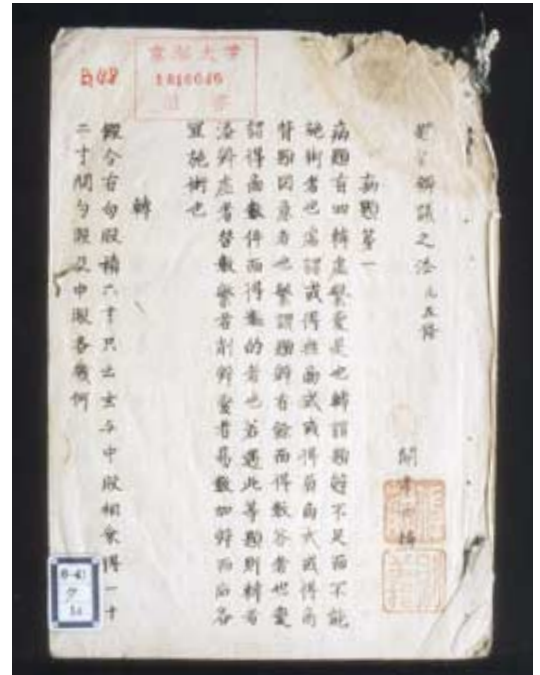 京都大学
1816646
図書
題術辨議之法 凡五條
關孝和編
病題第一
病題有四轉虚繁變是也轉謂題辭不足而不能
施術者也虚謂或得無商式或得負商式或得商
題意者也繁謂題辭有餘而得數答者也變
謂得商數件而得數的者也若遇此等題則轉者
添辭虚者替數繁者削辭變者易數加辭而后各
宜施術也
轉
假令有勾股積六寸只云玄与中股相乗得一十
二寸問勾股及中股各幾何
6-41
ク